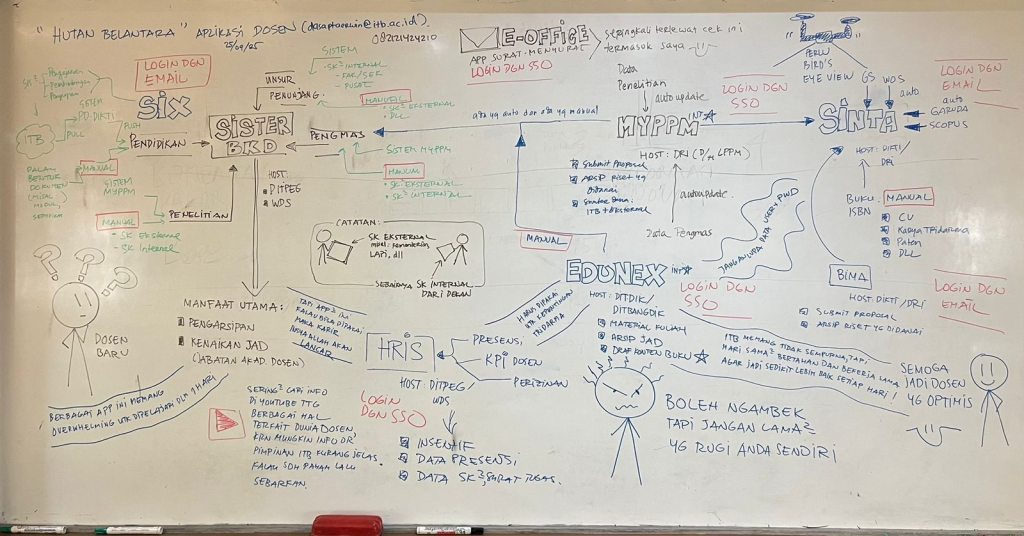 "HUTAN BELANTARA" APLIKASI DOSEN (dasaptaerwin@itb.ac.id)
082121424210
LOGIN DGN
EMAIL
SIX
SK²
Pengajaran
Pembimbingan
Pengujian
SISTEM
PD DIKTI
ITB
PULL
PUSH
PENDIDIKAN
MANUAL
DALAM
BENTUK
DOKUMEN
SISTEM
MYPPM
MANUAL
SK Eksternal
SK Internal
PENELITIAN
UNSUR
PENUNJANG
SISTEM
- SK² INTERNAL
- FAK/SEK
- PUSAT
MANUAL
SK² EKSTERNAL
DLL
SISTER
BKD
PENGMAS
SISTEM MYPPM
MANUAL
SK² EKSTERNAL
SK² INTERNAL
HOST:
DITPEG
WDS
E-OFFICE
APP SURAT-MENYURAT
LOGIN DGN SSO
seringkali terlewat cek ini
termasuk saya
Data
Penelitian
auto update
ada yg auto dan ada yg manual
LOGIN DGN
SSO
MYPPM
INTI
HOST: DRI (D/H LPPM)
Submit Proposal
ARSIP Riset yg
Didanai
Sumber Dana:
ITB + eksternal
autoupdate
Data Pengmas
PERLU
BIRD'S
EYE VIEW
GS
WOS
auto
LOGIN DGN
EMAIL
auto
GARUDA
SCOPUS
SINTA
HOST: DIKTI/
DRI
BUKU
ISBN
MANUAL
CV
Karya TRIdarma
Paten
DLL
JANGAN LUPA PADA USER + PWD
BIMA
HOST DIKTI/DRI
SUBMIT PROPOSAL
ARSIP RISET YG DIDANAI
LOGIN DGN
EMAIL
CATATAN:
SK EKSTERNAL
misal: kementerian,
LAPI, dll
SEBAIKNYA SK INTERNAL
DARI DEKAN
MANUAL
EDUNEX
INTI
LOGIN DGN
SSO
HOST: DITDIK/
DITBANGDIK
MATERIAL KULIAH
ARSIP JAD
DRAF KONTEN BUKU
HARUS DIPAKAI
UTK KEPENTINGAN
TRIDARMA
DOSEN
BARU
MANFAAT UTAMA:
PENGARSIPAN
KENAIKAN JAD
(JABATAN AKAD. DOSEN)
TAPI APP² INI
KALAU BISA DIPAKAI,
MAKA KARIR
INSYA ALLAH AKAN
LANCAR
HRIS
PRESENSI
KPI DOSEN
PERIZINAN
HOST: DITPEG/
WDS
LOGIN
DGN SSO
INSENTIF
DATA PRESENSI
DATA SK², SURAT TUGAS.
BERBAGAI APP INI MEMANG
OVERWHELMING UTK DIPELAJARI DLM 1 HARI
SERING² CARI INFO
DI YOUTUBE TTG
BERBAGAI HAL
TERKAIT DUNIA DOSEN
KRN MUNGKIN INFO DR
PIMPINAN ITB KURANG JELAS.
KALAU SDH PAHAM LALU
SEBARKAN.
ITB MEMANG TIDAK SEMPURNA, TAPI
HARI SAMA² BERTAHAN DAN BEKERJA LAMA
AGAR JADI SEDIKIT LEBIH BAIK SETIAP HARI!
BOLEH NGAMBEK
TAPI JANGAN LAMA²
YG RUGI ANDA SENDIRI
SEMOGA
JADI DOSEN
YG OPTIMIS